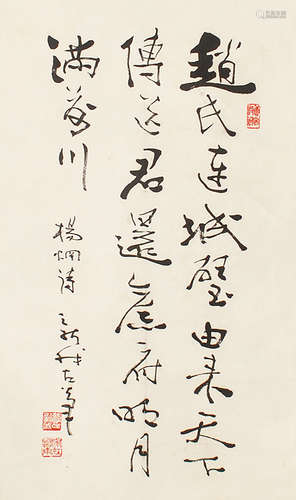 趙氏連城璧由來天下
傳送君還舊府明月
滿前川
楊炯詩 新我左筆